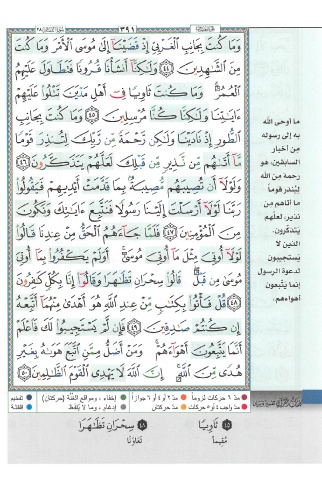 ٣٩١
وَمَا كُنتَ بِجَانِبِ الْغَرْبِيِّ إِذْ قَضَيْنَا إِلَىٰ مُوسَى الْأَمْرَ وَمَا كُنتَ
مِنَ الشَّاهِدِينَ ٤٤ وَلَٰكِنَّا أَنشَأْنَا قُرُونًا فَتَطَاوَلَ عَلَيْهِمُ
الْعُمُرُ وَمَا كُنتَ ثَاوِيًا فِي أَهْلِ مَدْيَنَ تَتْلُو عَلَيْهِمْ
ءَايَاتِنَا وَلَٰكِنَّا كُنَّا مُرْسِلِينَ ٤٥ وَمَا كُنتَ بِجَانِبِ
الطُّورِ إِذْ نَادَيْنَا وَلَٰكِن رَّحْمَةً مِّن رَّبِّكَ لِتُنذِرَ قَوْمًا
مَّا أَتَاهُم مِّن نَّذِيرٍ مِّن قَبْلِكَ لَعَلَّهُمْ يَتَذَكَّرُونَ ٤٦
وَلَوْلَا أَن تُصِيبَهُم مُّصِيبَةٌ بِمَا قَدَّمَتْ أَيْدِيهِمْ فَيَقُولُوا
رَبَّنَا لَوْلَا أَرْسَلْتَ إِلَيْنَا رَسُولًا فَنَتَّبِعَ ءَايَاتِكَ وَنَكُونَ
مِنَ الْمُؤْمِنِينَ ٤٧ فَلَمَّا جَاءَهُمُ الْحَقُّ مِنْ عِندِنَا قَالُوا
لَوْلَا أُوتِيَ مِثْلَ مَا أُوتِيَ مُوسَىٰ أَوَلَمْ يَكْفُرُوا بِمَا أُوتِيَ
مُوسَىٰ مِن قَبْلُ قَالُوا سِحْرَانِ تَظَاهَرَا وَقَالُوا إِنَّا بِكُلٍّ كَافِرُونَ
٤٨ قُلْ فَأْتُوا بِكِتَابٍ مِّنْ عِندِ اللَّهِ هُوَ أَهْدَىٰ مِنْهُمَا أَتَّبِعْهُ
إِن كُنتُمْ صَادِقِينَ ٤٩ فَإِن لَّمْ يَسْتَجِيبُوا لَكَ فَاعْلَمْ
أَنَّمَا يَتَّبِعُونَ أَهْوَاءَهُمْ وَمَنْ أَضَلُّ مِمَّنِ اتَّبَعَ هَوَاهُ بِغَيْرِ
هُدًى مِّنَ اللَّهِ إِنَّ اللَّهَ لَا يَهْدِي الْقَوْمَ الظَّالِمِينَ ٥٠
ما أوحى الله
به إلى رسوله
من أخبار
السابقين، هو
رحمة من الله
ليُنذر قوماً
ما أتاهم من
نذير، لعلّهم
يتذكّرون.
الذين لا
يستجيبون
لدعوة الرسول
إنما يتّبعون
أهواءهم.
مدّ ٦ حركات لزوماً مدّ ٢ أو ٤ أو ٦ جوازاً إخفاء، ومواقع الغُنّة (حركتان) تفخيم
مدّ واجب ٤ أو ٥ حركات مدّ حركتان إدغام، وما لا يُلفظ قلقلة
٤٥ ثَاوِيًا ٤٨ سِحْرَانِ تَظَاهَرَا
مُقيماً تَعَاوَنَا